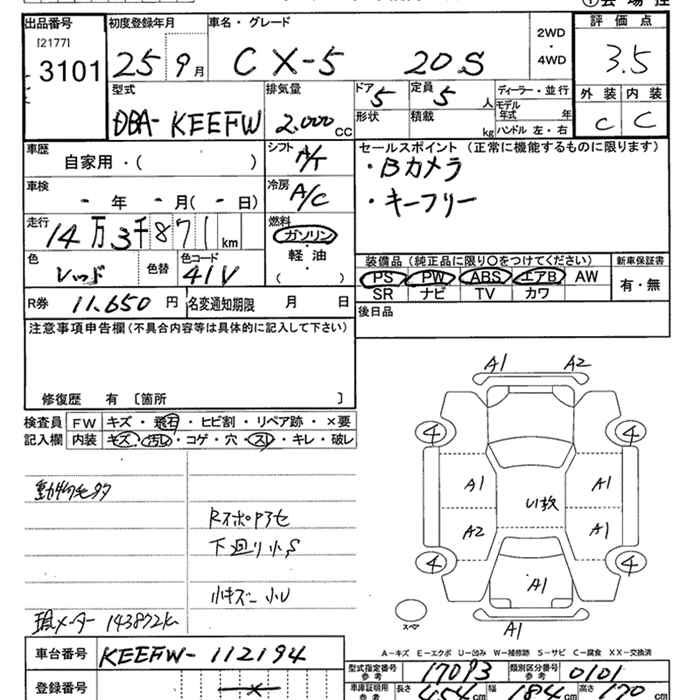 出品番号 初度登録年月 車名・グレード 2WD・4WD 評価点
[2177]
3101 25 9月 CX-5 20S 3.5
型式 排気量 ドア 定員 ディーラー・並行 外装 内装
DBA-KEEFW 2.000CC 5 5人 モデル年式 年 C C
形状 積載 kg ハンドル 左・右
車歴 自家用・( ) シフト A/T セールスポイント (正常に機能するものに限ります)
・Bカメラ
・キーフリー
車検 - 年 - 月(- 日) 冷房 A/C
走行 14万3千871km 燃料 ガソリン・軽油 ( )
色 レッド 色替 色コード 41V
装備品 (純正品に限り○をつけてください) 新車保証書
PS PW ABS エアB AW 有・無
SR ナビ TV カワ
R券 11,650円 名変通知期限 月 日 後日品
注意事項申告欄 (不具合内容等は具体的に記入して下さい)
修復歴 有 〔箇所 〕
検査員記入欄 FW キズ・飛石・ヒビ割・リペア跡・×要
内装 キズ・汚レ・コゲ・穴・スレ・キレ・破レ
動物毛多
RスポPアセ
下廻り小S
小キズ 小U
現メーター 143872k
A1 A2
4 4
A1 A1
U1枚
A2 A1
4 4
A1
スペア
A1
A-キズ E-エクボ U-凹み W-補修跡 S-サビ C-腐食 XX-交換済
車台番号 KEEFW-112194
型式指定番号 参考 17093 類別区分番号 参考 0101
登録番号
車庫証明用 参考 長さ 454cm 幅 184cm 高さ 170cm